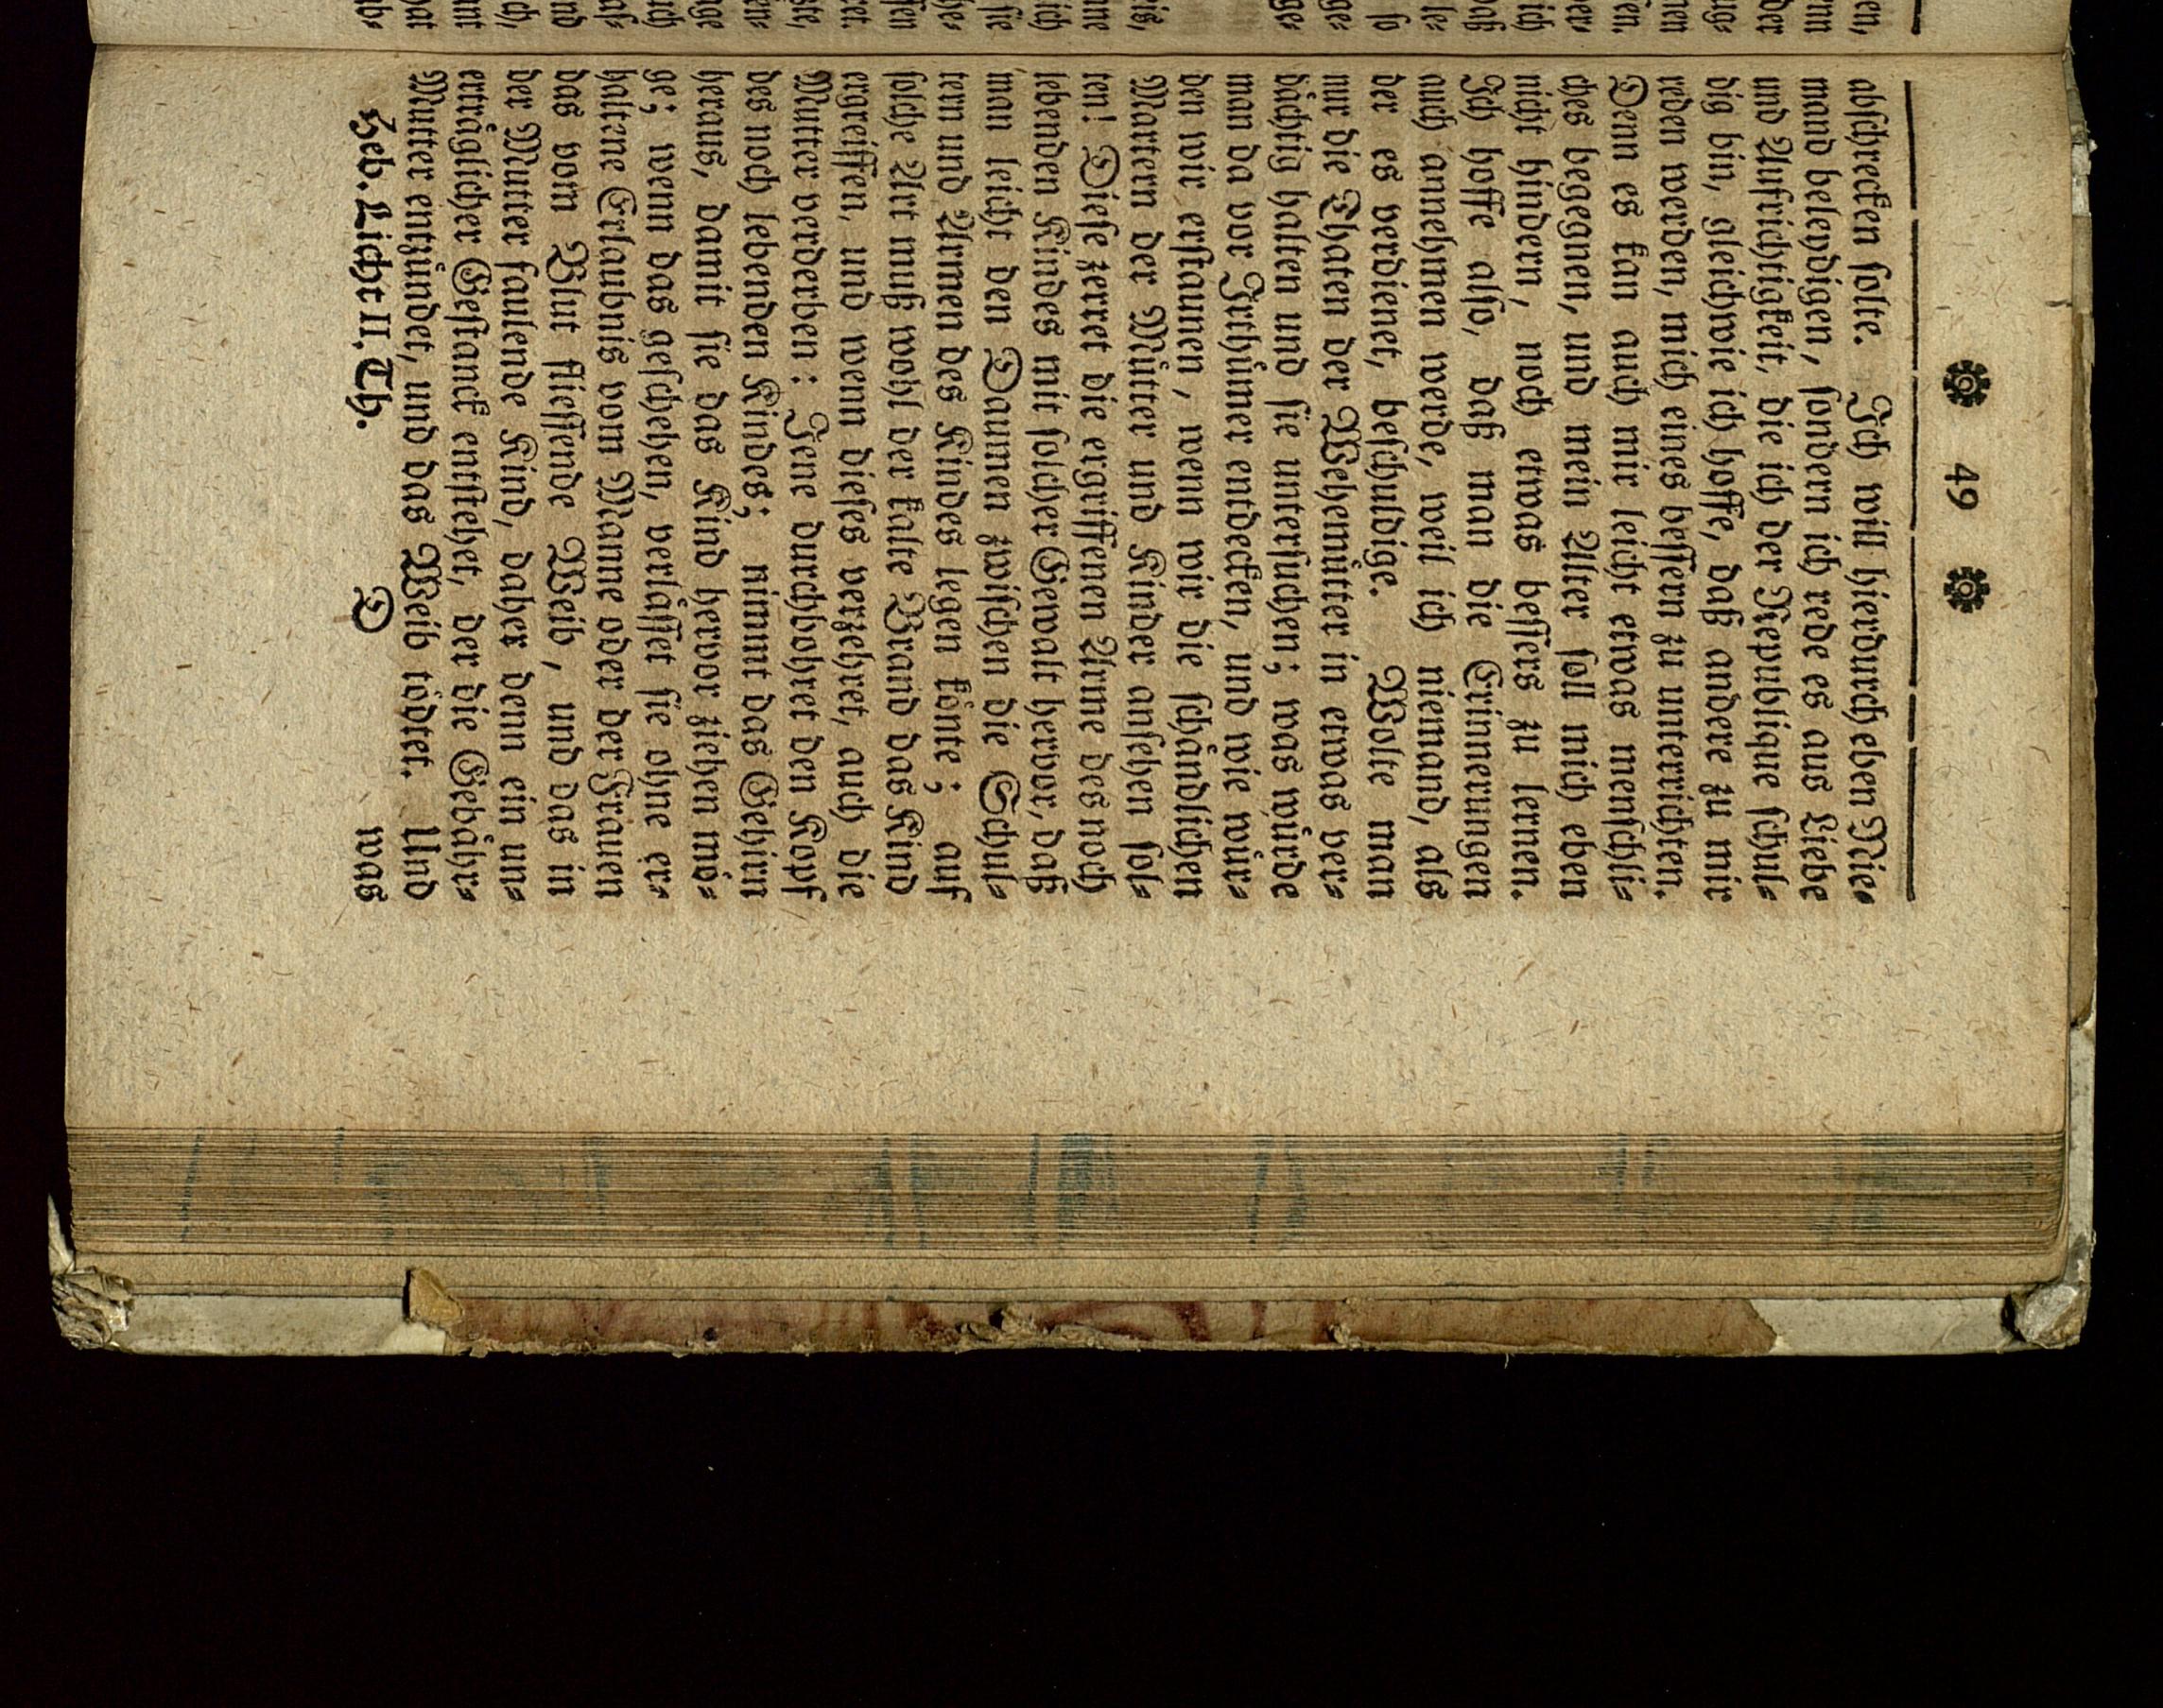 49
abschrecken solte. Ich will hierdurch eben Nie⸗
mand beleydigen, sondern ich rede es aus Liebe
und Aufrichtigkeit, die ich der Republique schul⸗
dig bin, gleichwie ich hoffe, daß andere zu mir
reden werden, mich eines bessern zu unterrichten.
Denn es kan auch mir leicht etwas menschli⸗
ches begegnen, und mein Alter soll mich eben
nicht hindern, noch etwas bessers zu lernen.
Ich hoffe also, daß man die Erinnerungen
auch annehmen werde, weil ich niemand, als
der es verdienet, beschuldige. Wolte man
nur die Thaten der Wehemütter in etwas ver⸗
dächtig halten und sie untersuchen; was würde
man da vor Irthümer entdecken, und wie wür⸗
den wir erstaunen, wenn wir die schändlichen
Martern der Mütter und Kinder ansehen sol⸗
ten! Diese zerret die ergriffenen Arme des noch
lebenden Kindes mit solcher Gewalt hervor, daß
man leicht den Daumen zwischen die Schul⸗
tern und Armen des Kindes legen könte; auf
solche Art muß wohl der kalte Brand das Kind
ergreiffen, und wenn dieses verzehret, auch die
Mutter verderben: Jene durchbohret den Kopf
des noch lebenden Kindes; nimmt das Gehirn
heraus, damit sie das Kind hervor ziehen mö⸗
ge; wenn das geschehen, verlässet sie ohne er⸗
haltene Erlaubnis vom Manne oder der Frauen
das vom Blut fliessende Weib, und das in
der Mutter faulende Kind, daher denn ein un⸗
erträglicher Gestanck entstehet, der die Gebähr⸗
Mutter entzündet, und das Weib tödtet. Und
Heb. Licht II. Th. D was